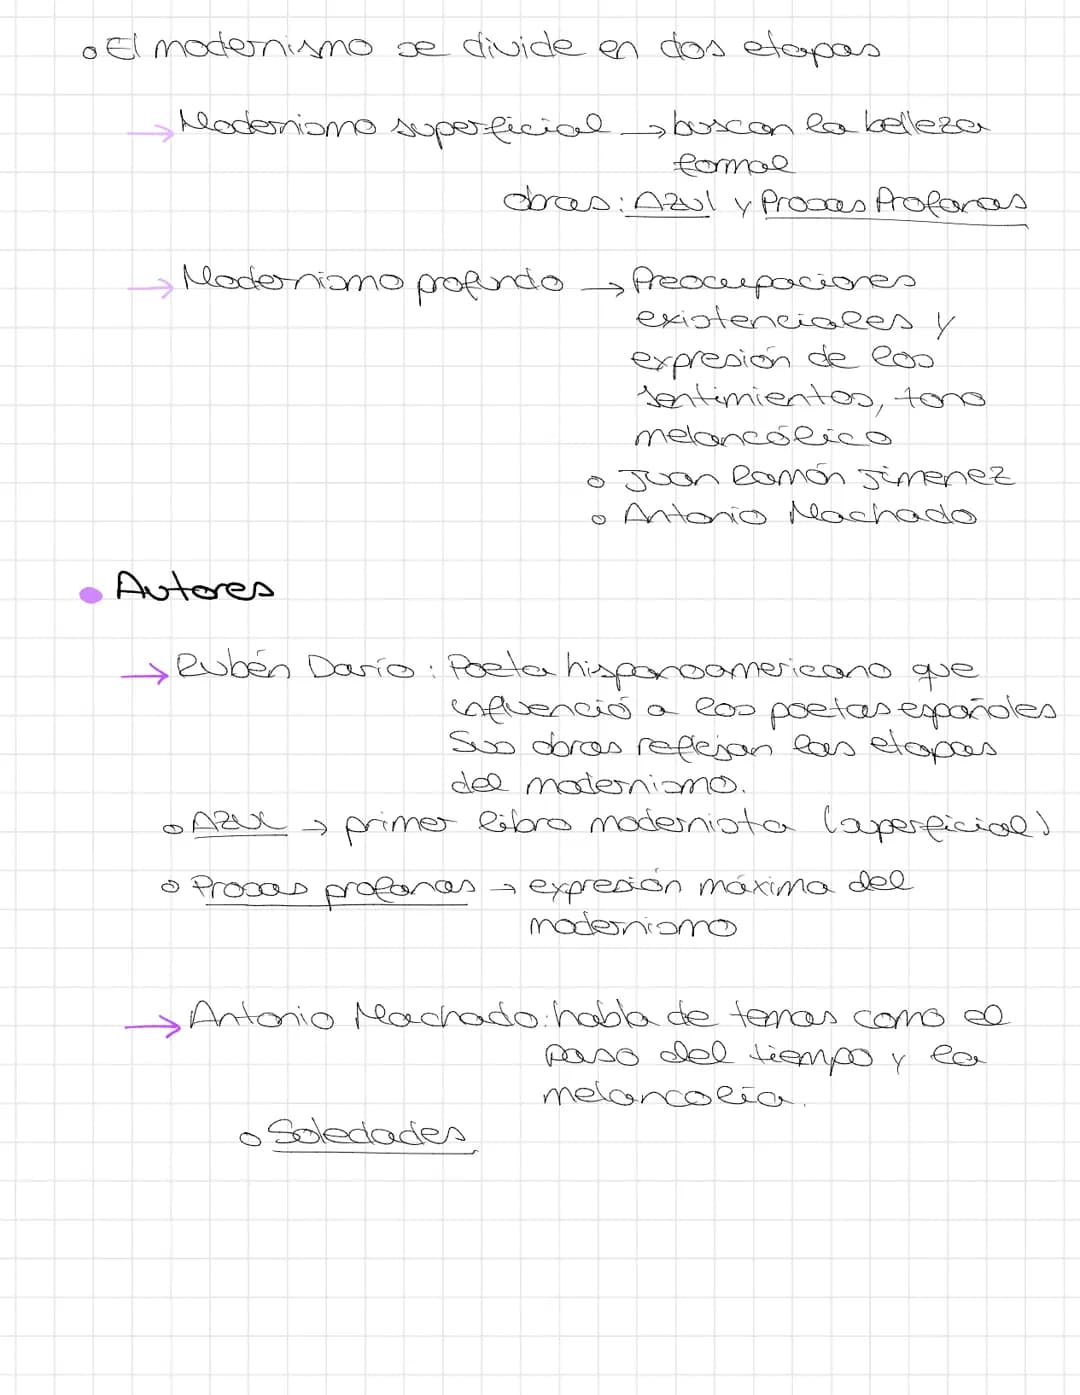 El modernismo se divide en dos etapas
→ Modernismo superficial → buscan la belleza
formal
obras: Azul y Prosas Profanas
→ Modernismo profundo → Preocupaciones
existenciales y
expresión de los
sentimientos, tono
melancólico
Juan Ramón Jimenez
Antonio Machado
Autores
→ Rubén Darío: Poeta hispanoamericano que
influenció a los poetas españoles
Sus obras reflejan las etapas
del modernismo.
Azul → primer libro modernista (superficial)
Prosas profanas → expresión máxima del
modernismo
→ Antonio Machado: habla de temas como el
paso del tiempo y la
melancolía.
Soledades